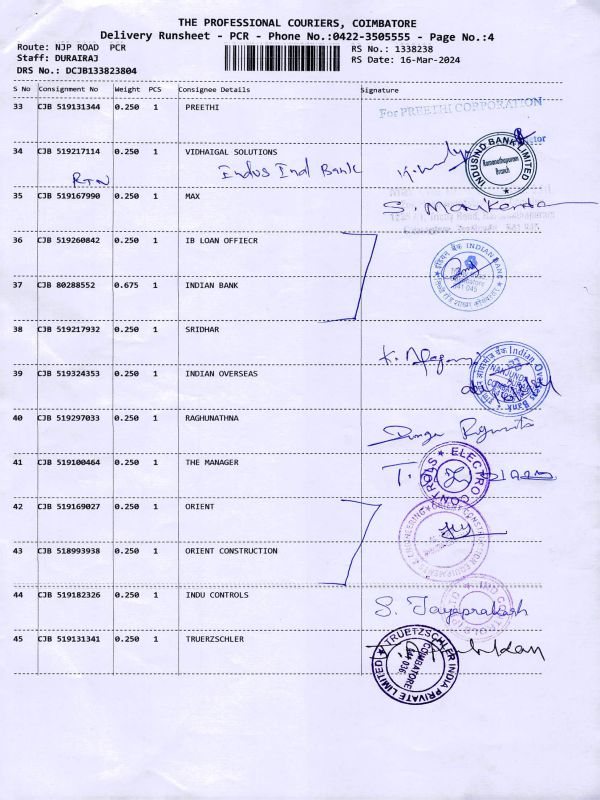 THE PROFESSIONAL COURIERS, COIMBATORE
Delivery Runsheet - PCR - Phone No.:0422-3505555 - Page No.:4
Route: NJP ROAD PCR
RS No.: 1338238
Staff: DURAIRAJ
RS Date: 16-Mar-2024
DRS No.: DCJB133823804
S No Consignment No Weight PCS Consignee Details Signature
33 CJB 519131344 0.250 1 PREETHI
For PREETHI CORPORATION
34 CJB 519217114 0.250 1 VIDHAIGAL SOLUTIONS
Indus Ind Bank
INDUSIND BANK LIMITED
Ramanathapuram
Branch
RTN
35 CJB 519167990 0.250 1 MAX
S. Manikanda
36 CJB 519260842 0.250 1 IB LOAN OFFIECR
INDIAN BANK
641 045
37 CJB 80288552 0.675 1 INDIAN BANK
38 CJB 519217932 0.250 1 SRIDHAR
K.
39 CJB 519324353 0.250 1 INDIAN OVERSEAS
Indian Overseas Bank
40 CJB 519297033 0.250 1 RAGHUNATHNA
41 CJB 519100464 0.250 1 THE MANAGER
T.
ELECTRO CONTROLS
42 CJB 519169027 0.250 1 ORIENT
43 CJB 518993938 0.250 1 ORIENT CONSTRUCTION
ORIENT CONSTRUCTION EQUIPMENTS & ENGINEERING
44 CJB 519182326 0.250 1 INDU CONTROLS
S. Jayaprakash
45 CJB 519131341 0.250 1 TRUERZSCHLER
TRUETZSCHLER INDIA PRIVATE LIMITED
COIMBATORE